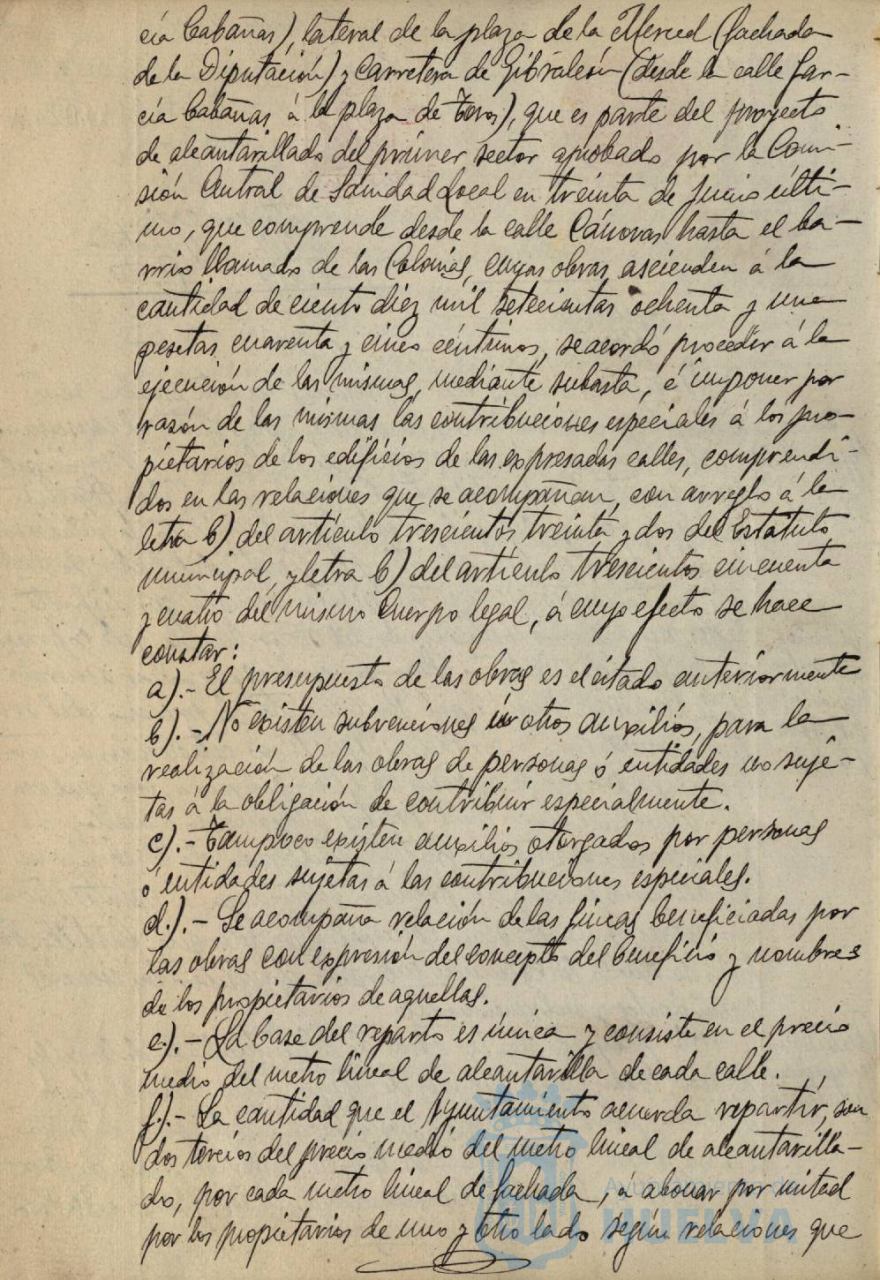 cía Cabañas), lateral de la plaza de la Merced (fachada
de la Diputación) y Carretera de Gibraleón (desde la calle Gar-
cía Cabañas á la plaza de Toros), que es parte del proyecto
de alcantarillado del primer sector aprobado por la Comi-
sión Central de Sanidad Local en treinta de Junio últi-
mo, que comprende desde la calle Cánovas hasta el ba-
rrio llamado de las Colonias, cuyas obras ascienden á la
cantidad de ciento diez mil setecientas ochenta y una
pesetas cuarenta y cinco céntimos, se acordó proceder á la
ejecución de las mismas, mediante subasta, é imponer por
razón de las mismas las contribuciones especiales á los pro-
pietarios de los edificios de las expresadas calles, comprendi-
dos en las relaciones que se acompañan, con arreglo á la
letra b) del artículo trescientos treinta y dos del Estatuto
municipal, y letra b) del artículo trescientos cincuenta
y cuatro del mismo Cuerpo legal, á cuyo efecto se hace
constar:
a).- El presupuesto de las obras es el citado anteriormente
b).- No existen subvenciones ni otros auxilios, para la
realización de las obras de personas ó entidades no suje-
tas á la obligación de contribuir especialmente.
c).- Tampoco existen auxilios otorgados por personas
ó entidades sujetas á las contribuciones especiales.
d.).- Se acompaña relación de las fincas beneficiadas por
las obras con expresión del concepto del beneficio y nombres
de los propietarios de aquellas.
e.).- La base del reparto es única y consiste en el precio
medio del metro lineal de alcantarilla de cada calle.
f.).- La cantidad que el Ayuntamiento acuerda repartir, son
dos tercios del precio medio del metro lineal de alcantarilla-
do, por cada metro lineal de fachada, á abonar por mitad
por los propietarios de uno y otro lado según relaciones que
Ayuntamiento de
HUELVA